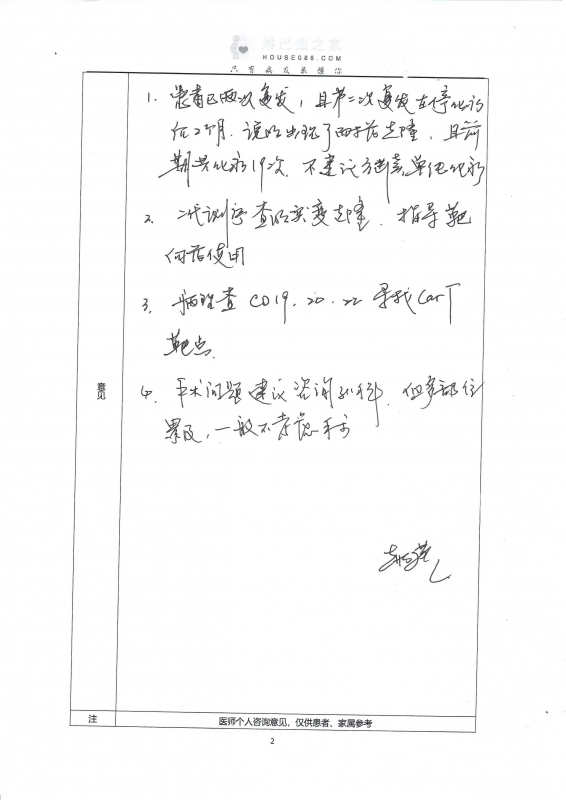 淋巴瘤之家
HOUSE086.COM
只有病友最懂你
1. 患者已两次复发,且第二次复发在停化疗
仅2个月,说明出现了耐药克隆,且前
期共化疗19次,不建议方案单纯化疗
2. 二代测序查明突变克隆,指导靶
向药使用
3. 病理查 CD19.20.22 寻找CarT
靶点.
意见
4. 手术问题建议咨询外科,但多部位
累及,一般不考虑手术
注
医师个人咨询意见,仅供患者、家属参考
2